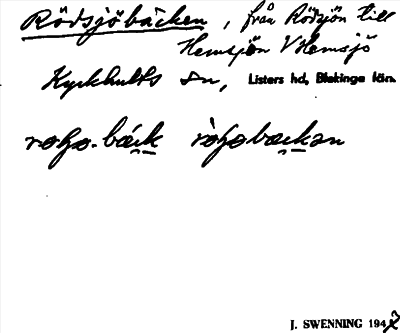 Rödsjöbäcken, från Rödsjön till
Hemsjön V Hemsjö
Kyrkhults sn, Listers hd, Blekinge län.
J. SWENNING 194